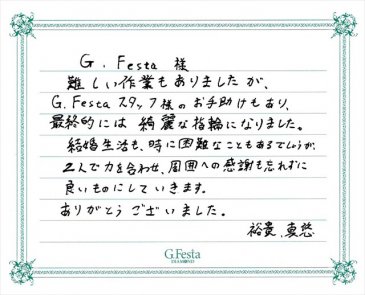 G. Festa 様
難しい作業もありましたが、
G. Festa スタッフ様のお手助けもあり、
最終的には綺麗な指輪になりました。
結婚生活も、時に困難なこともあるでしょうが、
2人で力を合わせ、周囲への感謝も忘れずに
良いものにしていきます。
ありがとうございました。
裕貴、真悠
G.Festa
DIAMOND